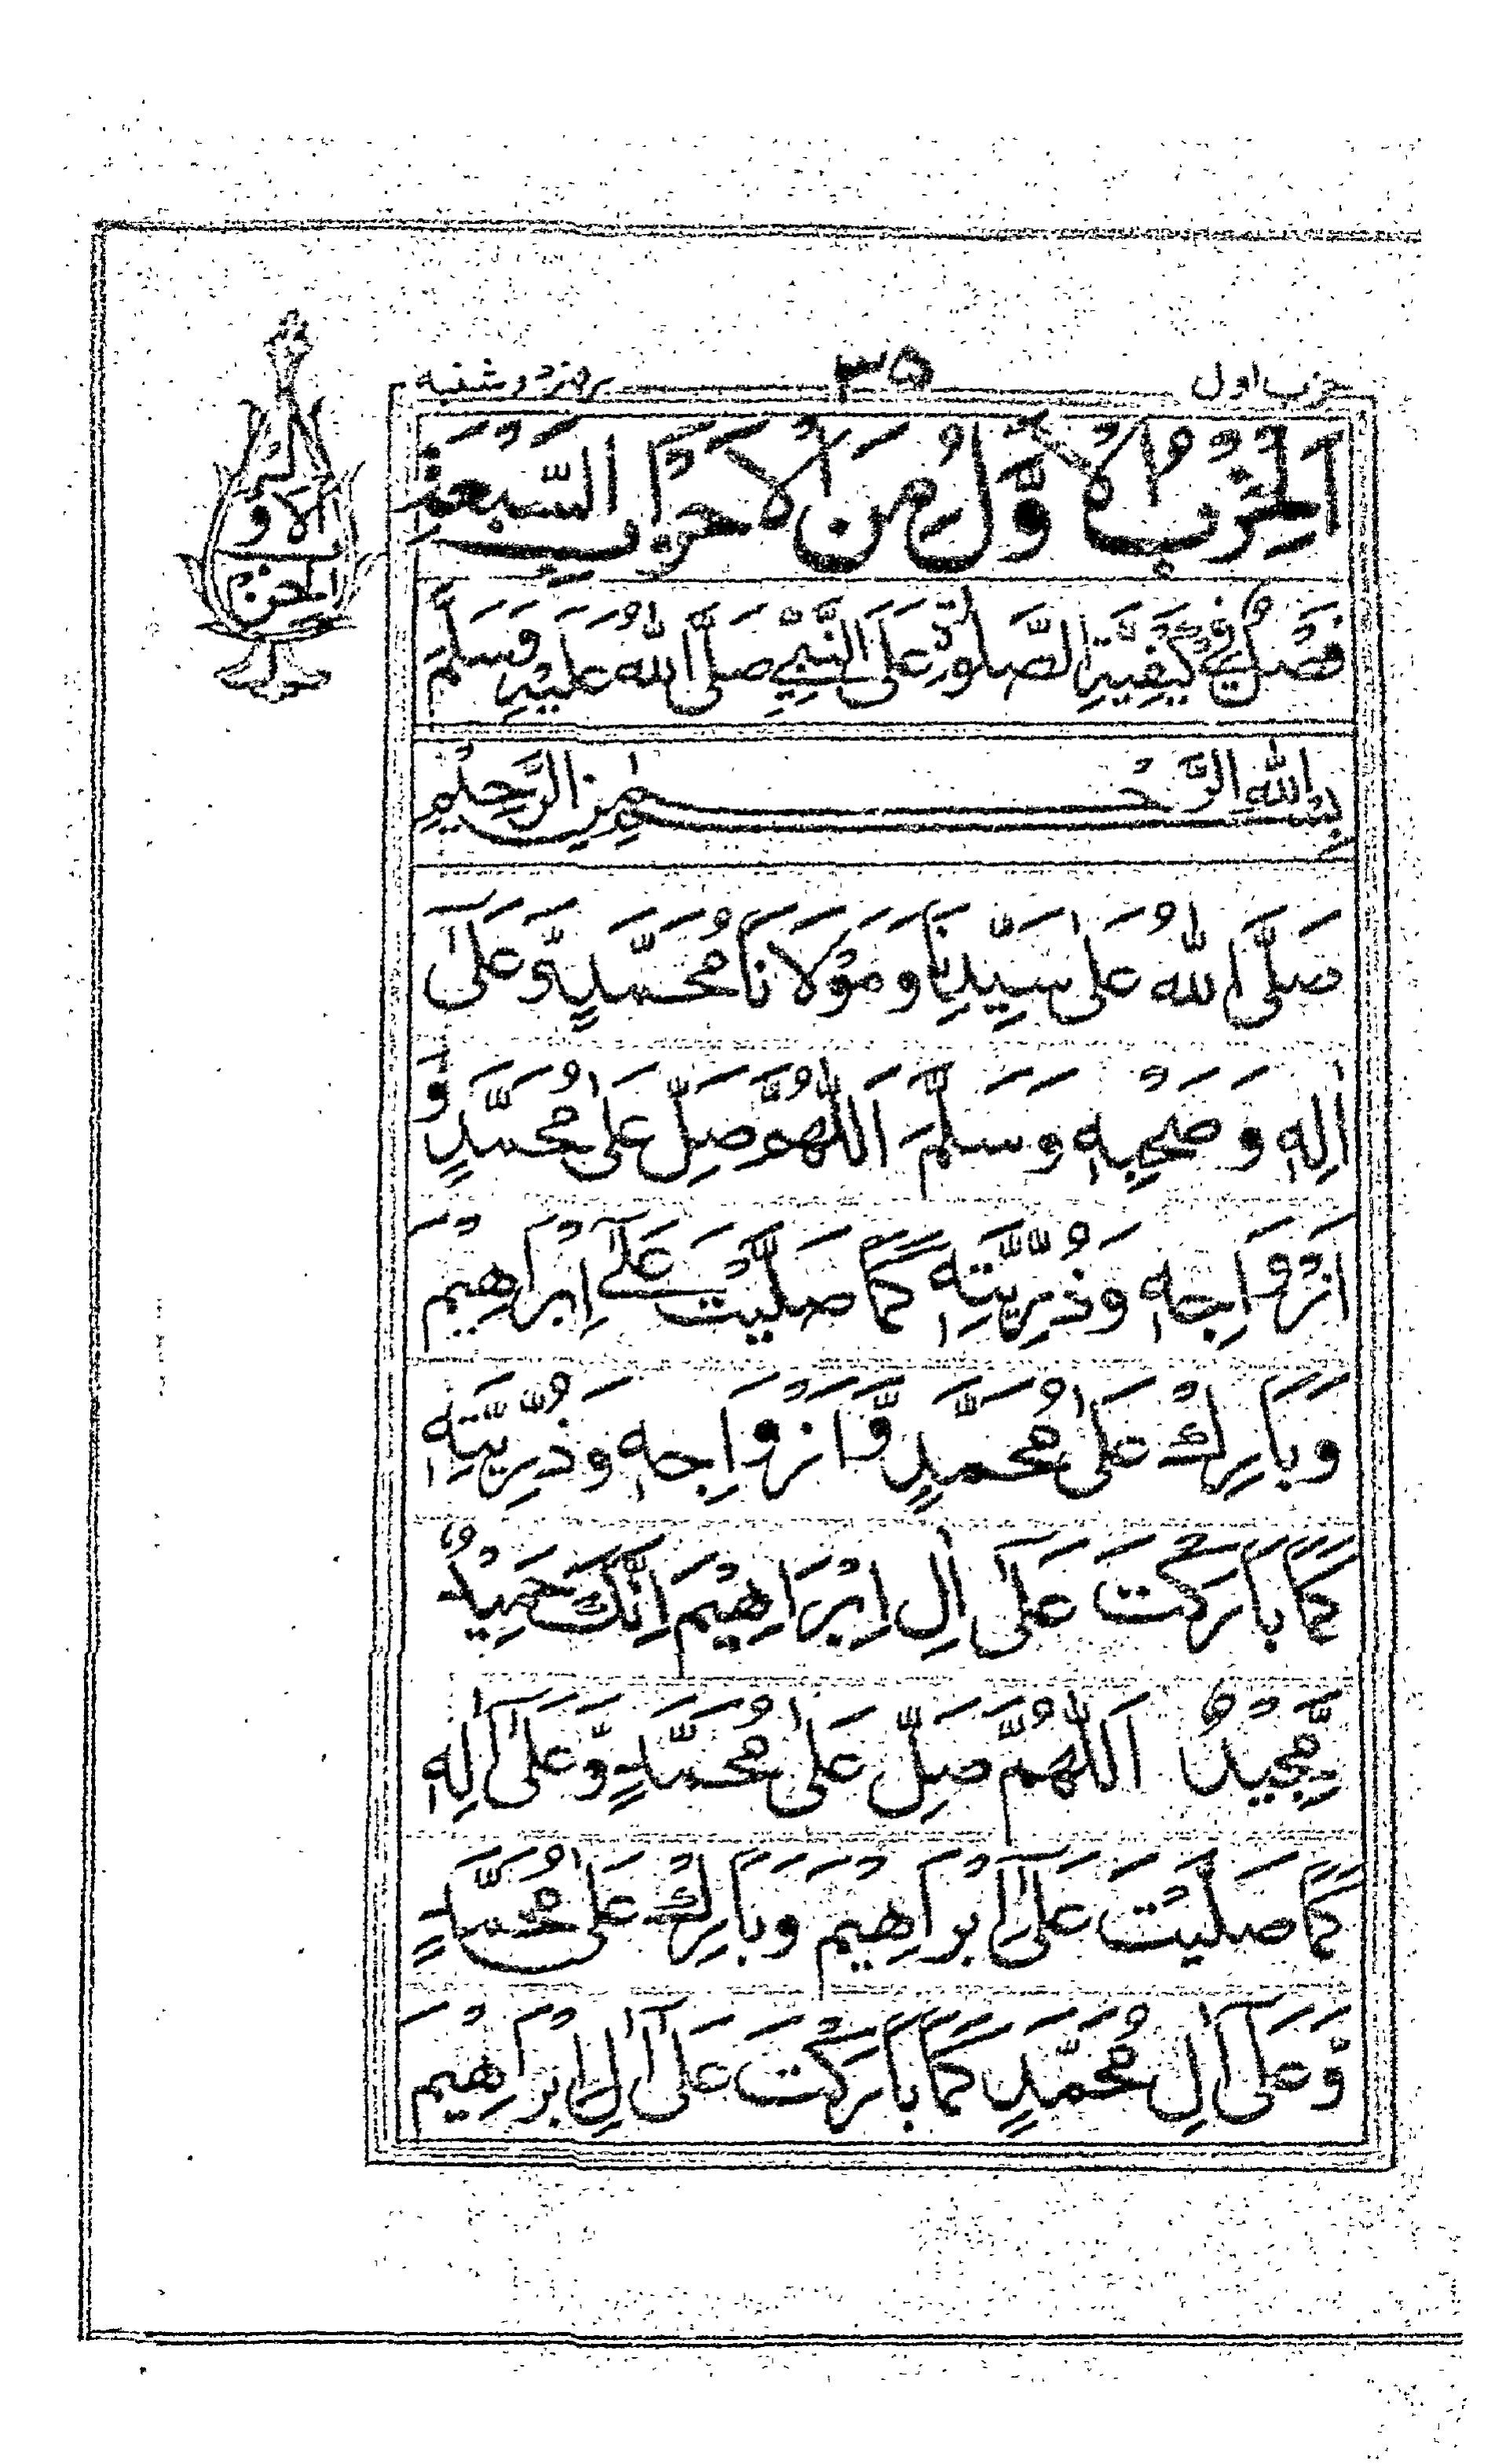 حزب اول ۳۵ بروز دوشنبہ
اَلْحِزْبُ الْاَوَّلُ مِنَ الْاَحْزَابِ السَّبْعَةِ
فَصْلٌ فِیْ كَیْفِیَّةِ الصَّلٰوةِ عَلَی النَّبِیِّ صَلَّی اللّٰهُ عَلَیْهِ وَسَلَّمَ
بِسْمِ اللّٰهِ الرَّحْمٰنِ الرَّحِیْمِ
صَلَّی اللّٰهُ عَلٰی سَیِّدِنَا وَمَوْلَانَا مُحَمَّدٍ وَّعَلٰٓی
اٰلِهٖ وَصَحْبِهٖ وَسَلَّمَ اَللّٰهُمَّ صَلِّ عَلٰی مُحَمَّدٍ وَّ
اَزْوَاجِهٖ وَذُرِّیَّتِهٖ كَمَا صَلَّیْتَ عَلٰٓی اِبْرَاهِیْمَ
وَبَارِكْ عَلٰی مُحَمَّدٍ وَّاَزْوَاجِهٖ وَذُرِّیَّتِهٖ
كَمَا بَارَكْتَ عَلٰٓی اٰلِ اِبْرَاهِیْمَ اِنَّكَ حَمِیْدٌ
مَّجِیْدٌ اَللّٰهُمَّ صَلِّ عَلٰی مُحَمَّدٍ وَّعَلٰٓی اٰلِهٖ
كَمَا صَلَّیْتَ عَلٰٓی اِبْرَاهِیْمَ وَبَارِكْ عَلٰی مُحَمَّدٍ
وَّعَلٰٓی اٰلِ مُحَمَّدٍ كَمَا بَارَكْتَ عَلٰٓی اٰلِ اِبْرَاهِیْمَ
الحزب
الاو
ل